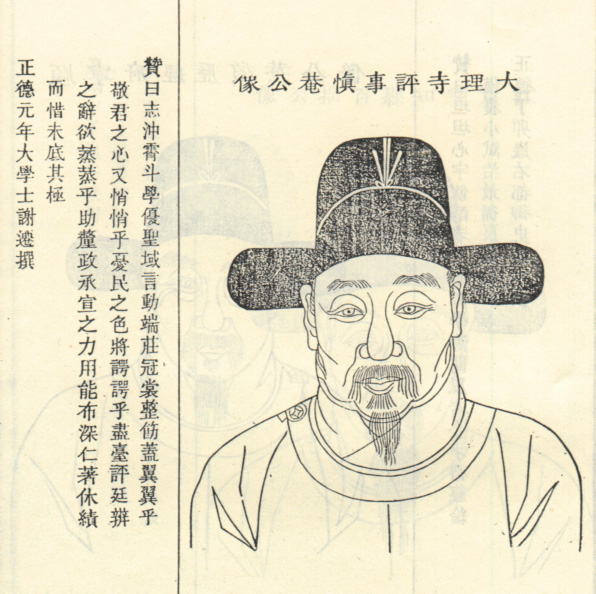 大理寺評事愼菴公像
贊曰志沖霄斗學優聖域言動端莊冠裳整飭蓋翼翼乎
敬君之心又悄悄乎憂民之色將諤諤乎盡臺評廷辨
之辭欲蒸蒸乎助釐政承宣之力用能布深仁著休績
而惜未底其極
正德元年大學士謝遷撰